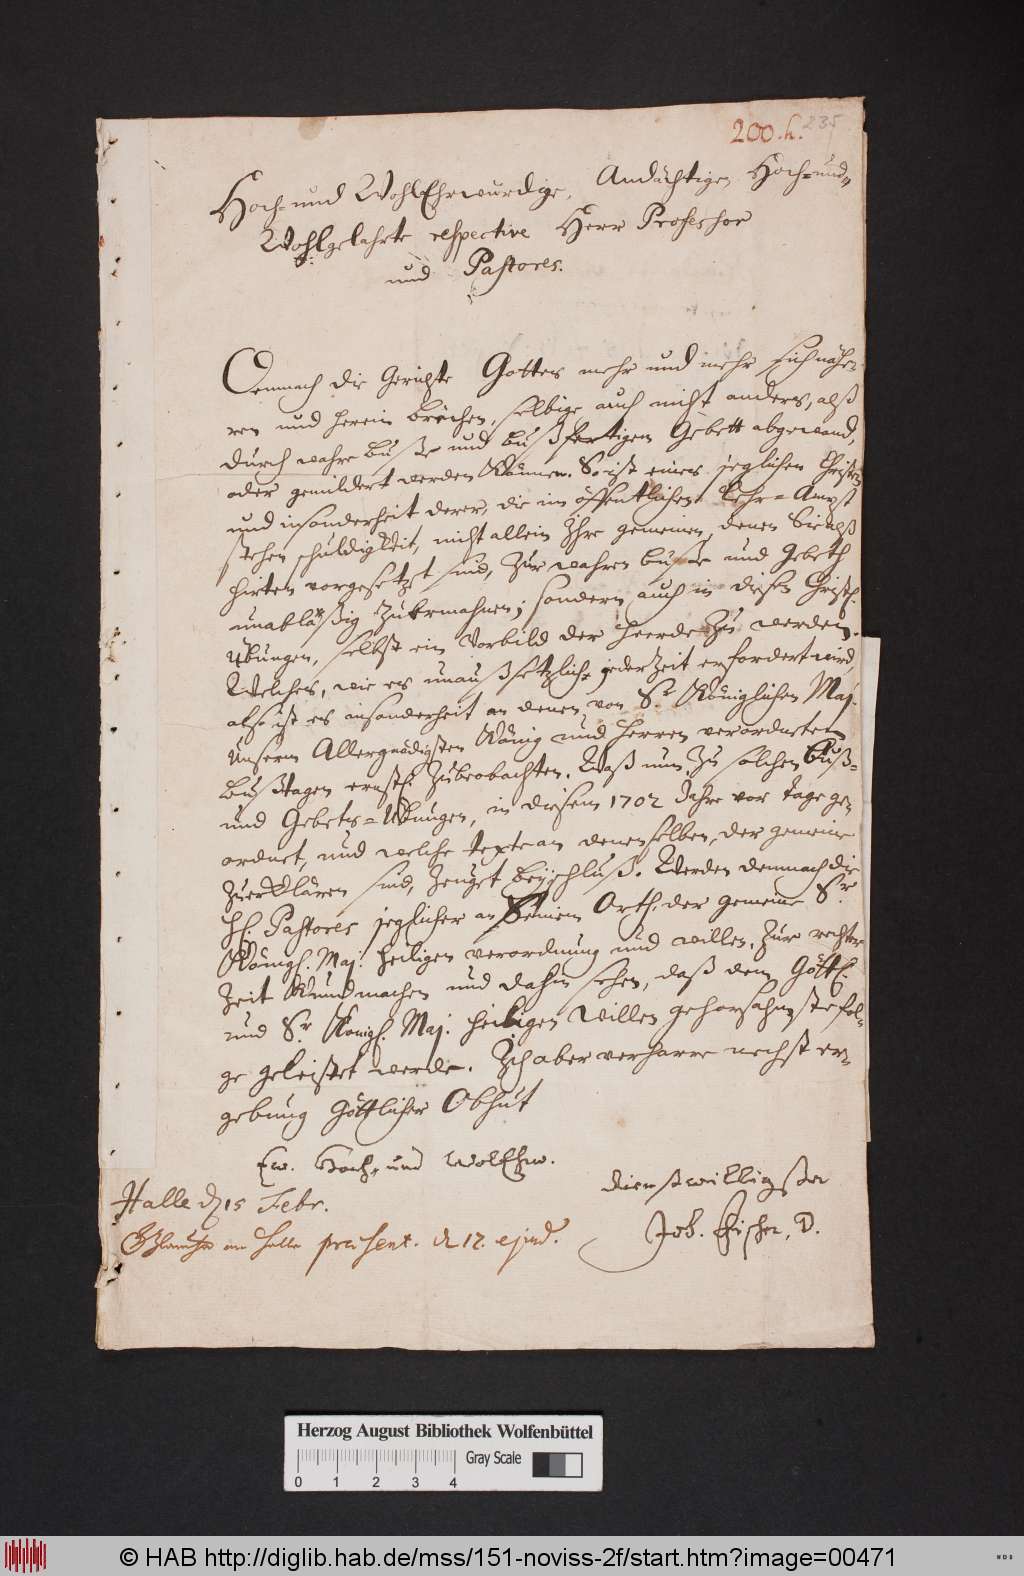 200.h. 235
Hoch- und WohlEhrwürdige, Andächtige, Hoch- und
Wohlgelahrte respective Herr Professor
und Pastores.
Demnach die Gerichte Gottes mehr und mehr sich nähe-
ren und herein brechen, selbige auch nicht anders, alß
durch wahre Buße und bußfertigen Gebett abgewand,
oder gemildert werden Können. So ist eines jeglichen Christen
und insonderheit derer, die im öffentlichen Lehr-Ampt
stehen schuldigkeit, nicht allein Ihre gemeinen, denen Sie alß
hirten vorgesetzet sind, Zur wahren buße und Gebeth
unabläßig Zu Ermahnen; sondern auch in diesen Christl.
Übungen, selbst ein Vorbild der Heerde Zu werden.
Welches, wie es unaußsetzlich jederZeit erfordert wird,
also ist es insonderheit an denen von Sr Königlichen Maj.
Unserm Allergnädigsten König und Herren verordneten
Bußtagen ernstl. Zubeobachten. Waß nun Zu solchen Buß-
und Gebets-Übungen, in diesem 1702 Jahre vor Tage geo
ordnet, und welche texte an denenselben, der gemeine
Zuerklären sind, Zeuget beyschluß. Werden demnach die
HH. Pastores jeglicher an Seinem Orth, der gemeine Sr
Königl. Maj. heiligen verordnung und willen, Zur rechter
Zeit Kundmachen und dahin sehen, daß dem Göttl.
und Sr Königl. Maj. heiligen Willen gehorsahmste fol-
ge geleistet werde. Ich aber verharre nechst er-
gebung Göttlicher Obhut
Ew. Hoch- und WolEhrw.
dienstwilligster
Halle d 15 Febr.
Joh. Fischer, D.
Glaucha an Halle præsent. d 17. ejusd.
Herzog August Bibliothek Wolfenbüttel
Gray Scale
0 1 2 3 4
© HAB http://diglib.hab.de/mss/151-noviss-2f/start.htm?image=00471